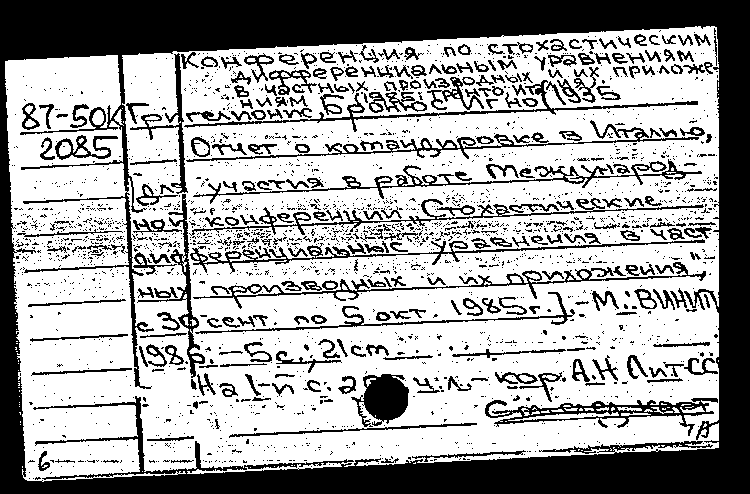 Конференция по стохастическим
дифференциальным уравнениям
в частных производных и их приложе-
ниям (1985, Тренто, Италия)
87-50К Григелионис, Бронюс Игно (1935
2085 Отчет о командировке в Италию,
[для участия в работе Международ-
ной конференции „Стохастические
дифференциальные уравнения в част
ных производных и их приложения",
с 30 сент. по 5 окт. 1985г.].-М.:ВИНИТИ
1986.-5с.; 21см
На 1-й с. авт.: чл.-кор. А.Н ЛитССР
См. след. карт
6